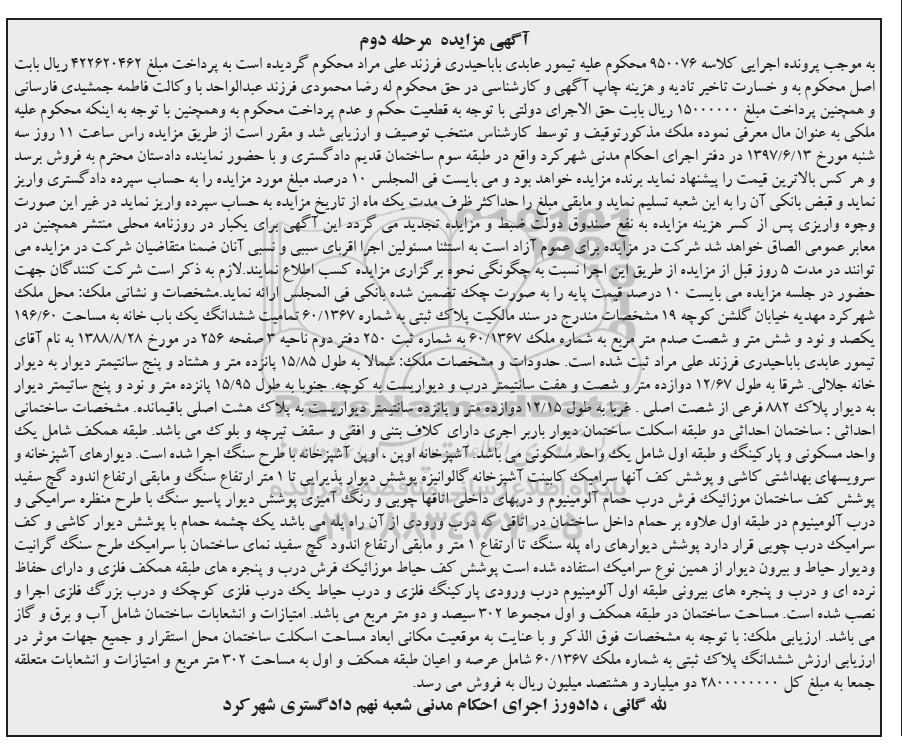 آگهی مزایده مرحله دوم
به موجب پرونده اجرایی کلاسه ۹۵۰۰۷۶ محکوم علیه تیمور عابدی باباحیدری فرزند علی مراد محکوم گردیده است به پرداخت مبلغ ۴۲۲۶۲۰۴۶۲ ریال بابت
اصل محکوم به و خسارت تاخیر تادیه و هزینه چاپ آگهی و کارشناسی در حق محکوم له رضا محمودی فرزند عبدالواحد با وکالت فاطمه جمشیدی فارسانی
و همچنین پرداخت مبلغ ۱۵۰۰۰۰۰۰ ریال بابت حق الاجرای دولتی با توجه به قطعیت حکم و عدم پرداخت محکوم به وهمچنین با توجه به اینکه محکوم علیه
ملکی به عنوان مال معرفی نموده ملک مذکورتوقیف و توسط کارشناس منتخب توصیف و ارزیابی شد و مقرر است از طریق مزایده راس ساعت ۱۱ روز سه
شنبه مورخ ۱۳۹۷/۶/۱۳ در دفتر اجرای احکام مدنی شهرکرد واقع در طبقه سوم ساختمان قدیم دادگستری و با حضور نماینده دادستان محترم به فروش برسد
و هر کس بالاترین قیمت را پیشنهاد نماید برنده مزایده خواهد بود و می بایست فی المجلس ۱۰ درصد مبلغ مورد مزایده را به حساب سپرده دادگستری واریز
نماید و قبض بانکی آن را به این شعبه تسلیم نماید و مابقی مبلغ را حداکثر ظرف مدت یک ماه از تاریخ مزایده به حساب سپرده واریز نماید در غیر این صورت
وجوه واریزی پس از کسر هزینه مزایده به نفع صندوق دولت ضبط و مزایده تجدید می گردد این آگهی برای یکبار در روزنامه محلی منتشر همچنین در
معابر عمومی الصاق خواهد شد شرکت در مزایده برای عموم آزاد است به استثنا مسئولین اجرا اقربای سببی و نسبی آنان ضمنا متقاضیان شرکت در مزایده می
توانند در مدت ۵ روز قبل از مزایده از طریق این اجرا نسبت به چگونگی نحوه برگزاری مزایده کسب اطلاع نمایند.لازم به ذکر است شرکت کنندگان جهت
حضور در جلسه مزایده می بایست ۱۰ درصد قیمت پایه را به صورت چک تضمین شده بانکی فی المجلس ارائه نماید.مشخصات و نشانی ملک: محل ملک
شهرکرد مهدیه خیابان گلشن کوچه ۱۹ مشخصات مندرج در سند مالکیت پلاک ثبتی به شماره ۶۰/۱۳۶۷ تمامیت ششدانگ یک باب خانه به مساحت ۱۹۶/۶۰
یکصد و نود و شش متر و شصت صدم متر مربع به شماره ملک ۶۰/۱۳۶۷ به شماره ثبت ۲۵۰ دفتر دوم ناحیه ۳ صفحه ۲۵۶ در مورخ ۱۳۸۸/۸/۲۸ به نام آقای
تیمور عابدی باباحیدری فرزند علی مراد ثبت شده است. حدودات و مشخصات ملک: شمالا به طول ۱۵/۸۵ پانزده متر و هشتاد و پنج سانتیمتر دیوار به دیوار
خانه جلالی. شرقا به طول ۱۲/۶۷ دوازده متر و شصت و هفت سانتیمتر درب و دیواریست به کوچه. جنوبا به طول ۱۵/۹۵ پانزده متر و نود و پنج سانیمتر دیوار
به دیوار پلاک ۸۸۲ فرعی از شصت اصلی . غربا به طول ۱۲/۱۵ دوازده متر و پانزده سانتیمتر دیواریست به پلاک هشت اصلی باقیمانده. مشخصات ساختمانی
احداثی : ساختمان احداثی دو طبقه اسکلت ساختمان دیوار باربر اجری دارای کلاف بتنی و افقی و سقف تیرچه و بلوک می باشد. طبقه همکف شامل یک
واحد مسکونی و پارکینگ و طبقه اول شامل یک واحد مسکونی می باشد. آشپزخانه اوپن ، اوپن آشپزخانه با طرح سنگ اجرا شده است. دیوارهای آشپزخانه و
سرویسهای بهداشتی کاشی و پوشش کف آنها سرامیک کابینت آشپزخانه گالوانیزه پوشش دیوار پذیرایی تا ۱ متر ارتفاع سنگ و مابقی ارتفاع اندود گچ سفید
پوشش کف ساختمان موزائیک فرش درب حمام آلومینیوم و دربهای داخلی اتاقها چوبی و رنگ آمیزی پوشش دیوار پاسیو سنگ با طرح منظره سرامیکی و
درب آلومینیوم در طبقه اول علاوه بر حمام داخل ساختمان در اتاقی که درب ورودی از آن راه پله می باشد یک چشمه حمام با پوشش دیوار کاشی و کف
سرامیک درب چوبی قرار دارد پوشش دیوارهای راه پله سنگ تا ارتفاع ۱ متر و مابقی ارتفاع اندود گچ سفید نمای ساختمان با سرامیک طرح سنگ گرانیت
ودیوار حیاط و بیرون دیوار از همین نوع سرامیک استفاده شده است پوشش کف حیاط موزائیک فرش درب و پنجره های طبقه همکف فلزی و دارای حفاظ
نرده ای و درب و پنجره های بیرونی طبقه اول آلومینیوم درب ورودی پارکینگ فلزی و درب حیاط یک درب فلزی کوچک و درب بزرگ فلزی اجرا و
نصب شده است. مساحت ساختمان در طبقه همکف و اول مجموعا ۳۰۲ سیصد و دو متر مربع می باشد. امتیازات و انشعابات ساختمان شامل آب و برق و گاز
می باشد. ارزیابی ملک: با توجه به مشخصات فوق الذکر و با عنایت به موقعیت مکانی ابعاد مساحت اسکلت ساختمان محل استقرار و جمیع جهات موثر در
ارزیابی ارزش ششدانگ پلاک ثبتی به شماره ملک ۶۰/۱۳۶۷ شامل عرصه و اعیان طبقه همکف و اول به مساحت ۳۰۲ متر مربع و امتیازات و انشعابات متعلقه
جمعا به مبلغ کل ۲۸۰۰۰۰۰۰۰۰ دو میلیارد و هشتصد میلیون ریال به فروش می رسد.
لله گانی ، دادورز اجرای احکام مدنی شعبه نهم دادگستری شهرکرد